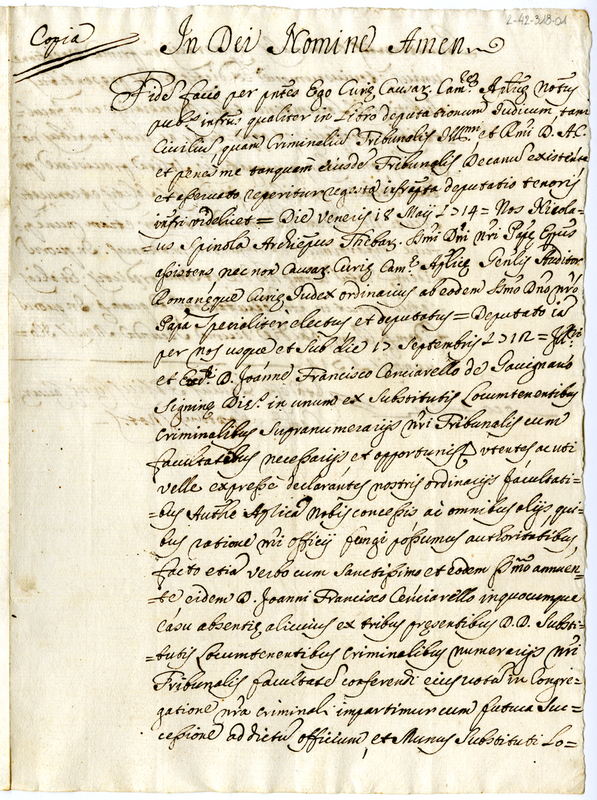 2-42-318-01
Copia
In Dei Nomine Amen
Fidem facio per pntes Ego Curiæ Causar. Cam.æ Aplicæ Notus
pubs infrus qualiter in Libro deputationum Iudicum, tam
Civilium quam Criminalium Tribunalis Illmi et Rmi D. A.C.
et penes me tanquam eiusdem Tribunalis Decanum existentem
et asservato reperitur regesta infrapta deputatio tenoris
infri videlicet = Die Veneris 18 Maij 1714 = Nos Nicola=
=us Spinola Archiepus Thebar. Smi Dni Nri Papæ Eppus
assistens nec non Causar. Curiæ Cam.æ Aplicæ Gnlis Auditor
Romanæque Curiæ Iudex ordinarius ab eodem Smo Dno nro
Papa specialiter electus et deputatus = Deputato iam
per nos usque et sub die 17 Septembris 1712 =
et D. Joanne Francisco Cenciarello de Gavignano
Signinæ Diæs. in unum ex Substitutis Locumtenentibus
Criminalibus Supranumerarijs nri Tribunalis cum
facultatibus necessarijs et opportunis utentes ac uti
velle expresse declarantes nostris ordinarijs facultati=
=bus Authe Aplica Nobis concessis ac omnibus alijs, qui=
bus ratione nri officij fungi possumus authoritatibus,
facto etiam verbo cum Sanctissimo et eodem Ssmo annuen=
=te eidem D. Joanni Francisco Cenciarello in quocumque
casu absentiæ alicuius ex tribus præsentibus D.D. Substi=
=tutis Locumtenentibus Criminalibus numerarijs nri
Tribunalis facultatem conferendi eius vota in Congre=
gatione nra criminali impartimur cum futura Suc=
cessione ad dictum officium, et Munus Substituti Lo=